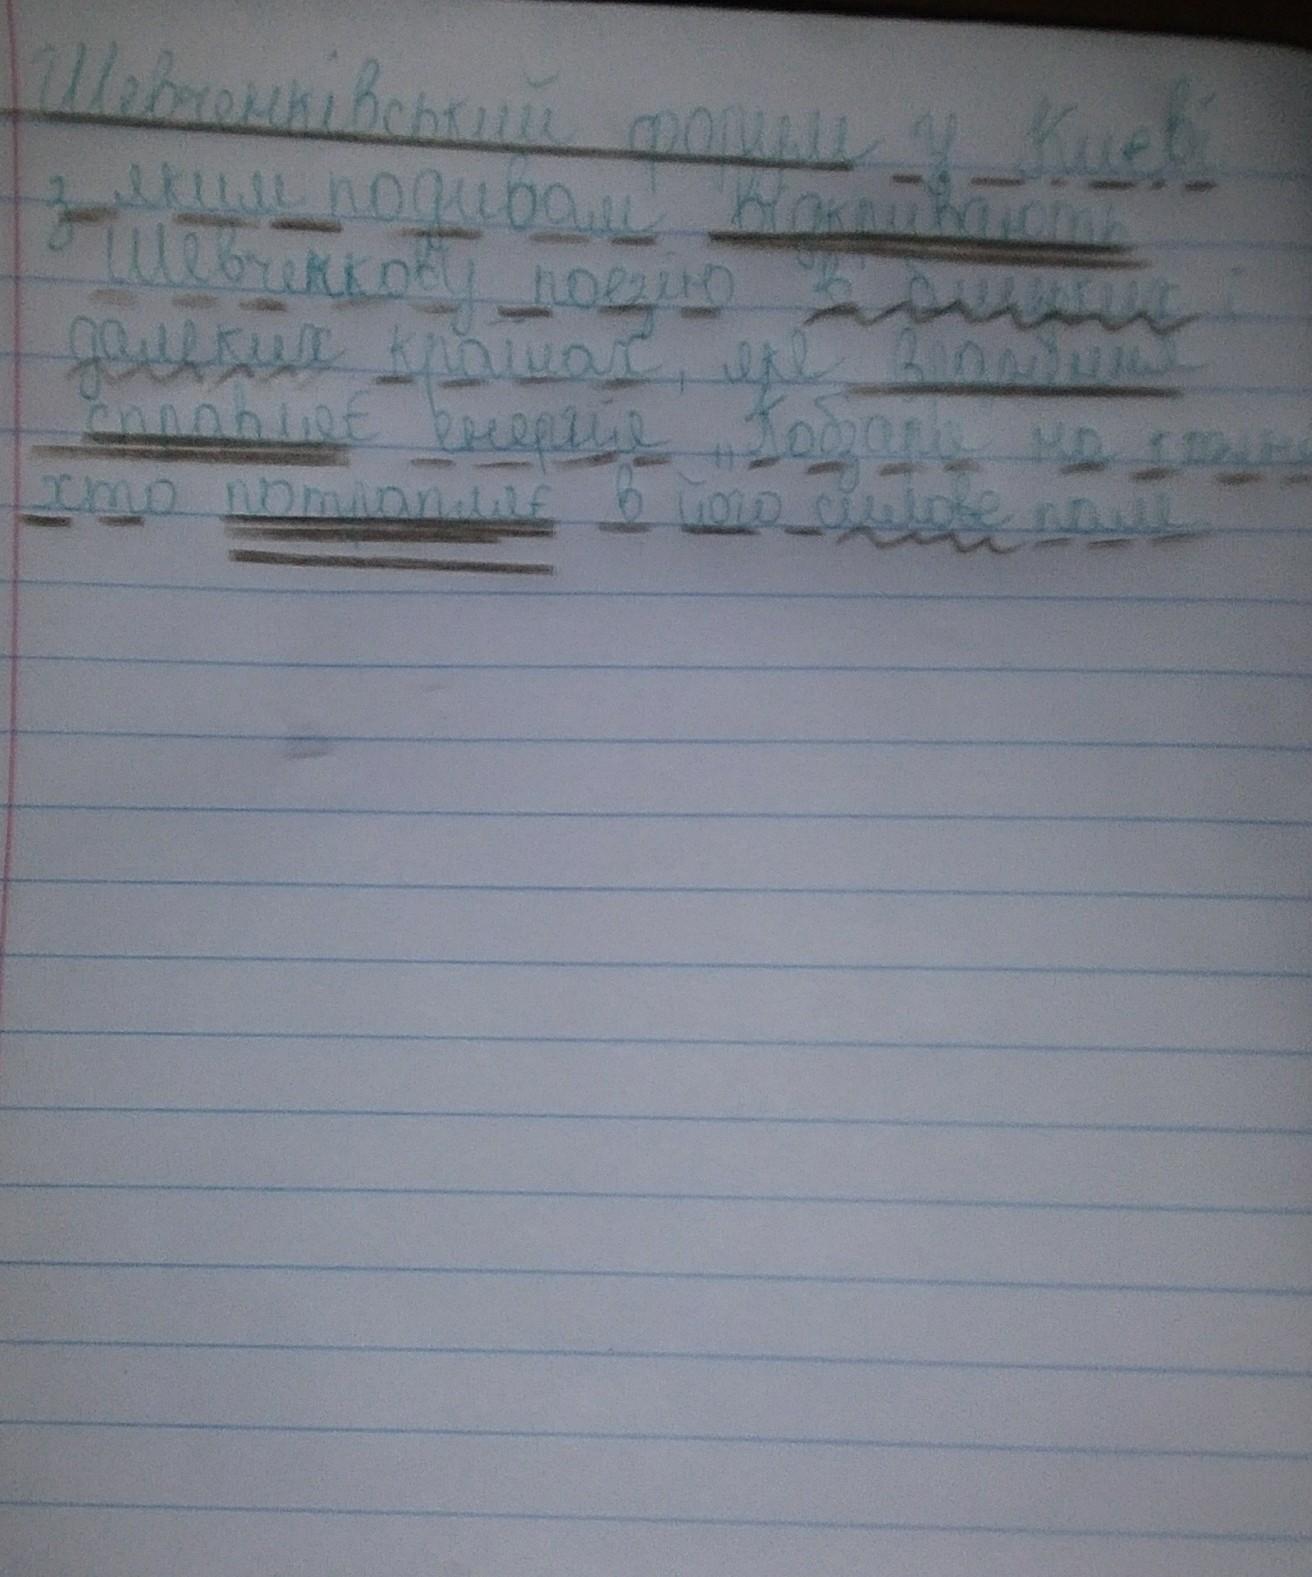 Шевченківський форум у Києві
з яким подивом відкривають
Шевченкову поезію в близьких і
далеких краінах, яке враження
справляє енергія „Кобзаря" на кожно
хто потрапляє в його силове поле